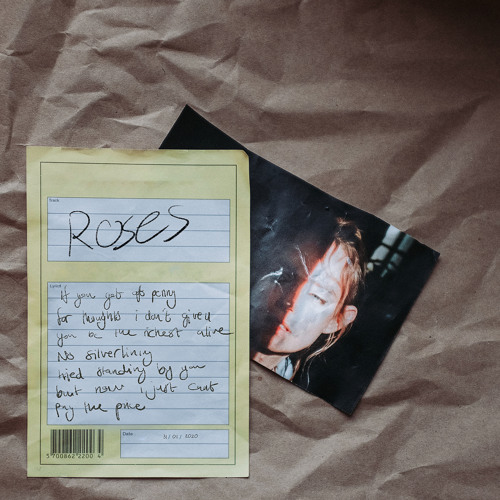 Track
Roses
Lyrics
If you got a penny
for thoughts i don't give u
you be the richest alive
No silverlining
tried standing by you
but now i just cant
pay the price
Date
11/01/2020
5 700862 2200 4